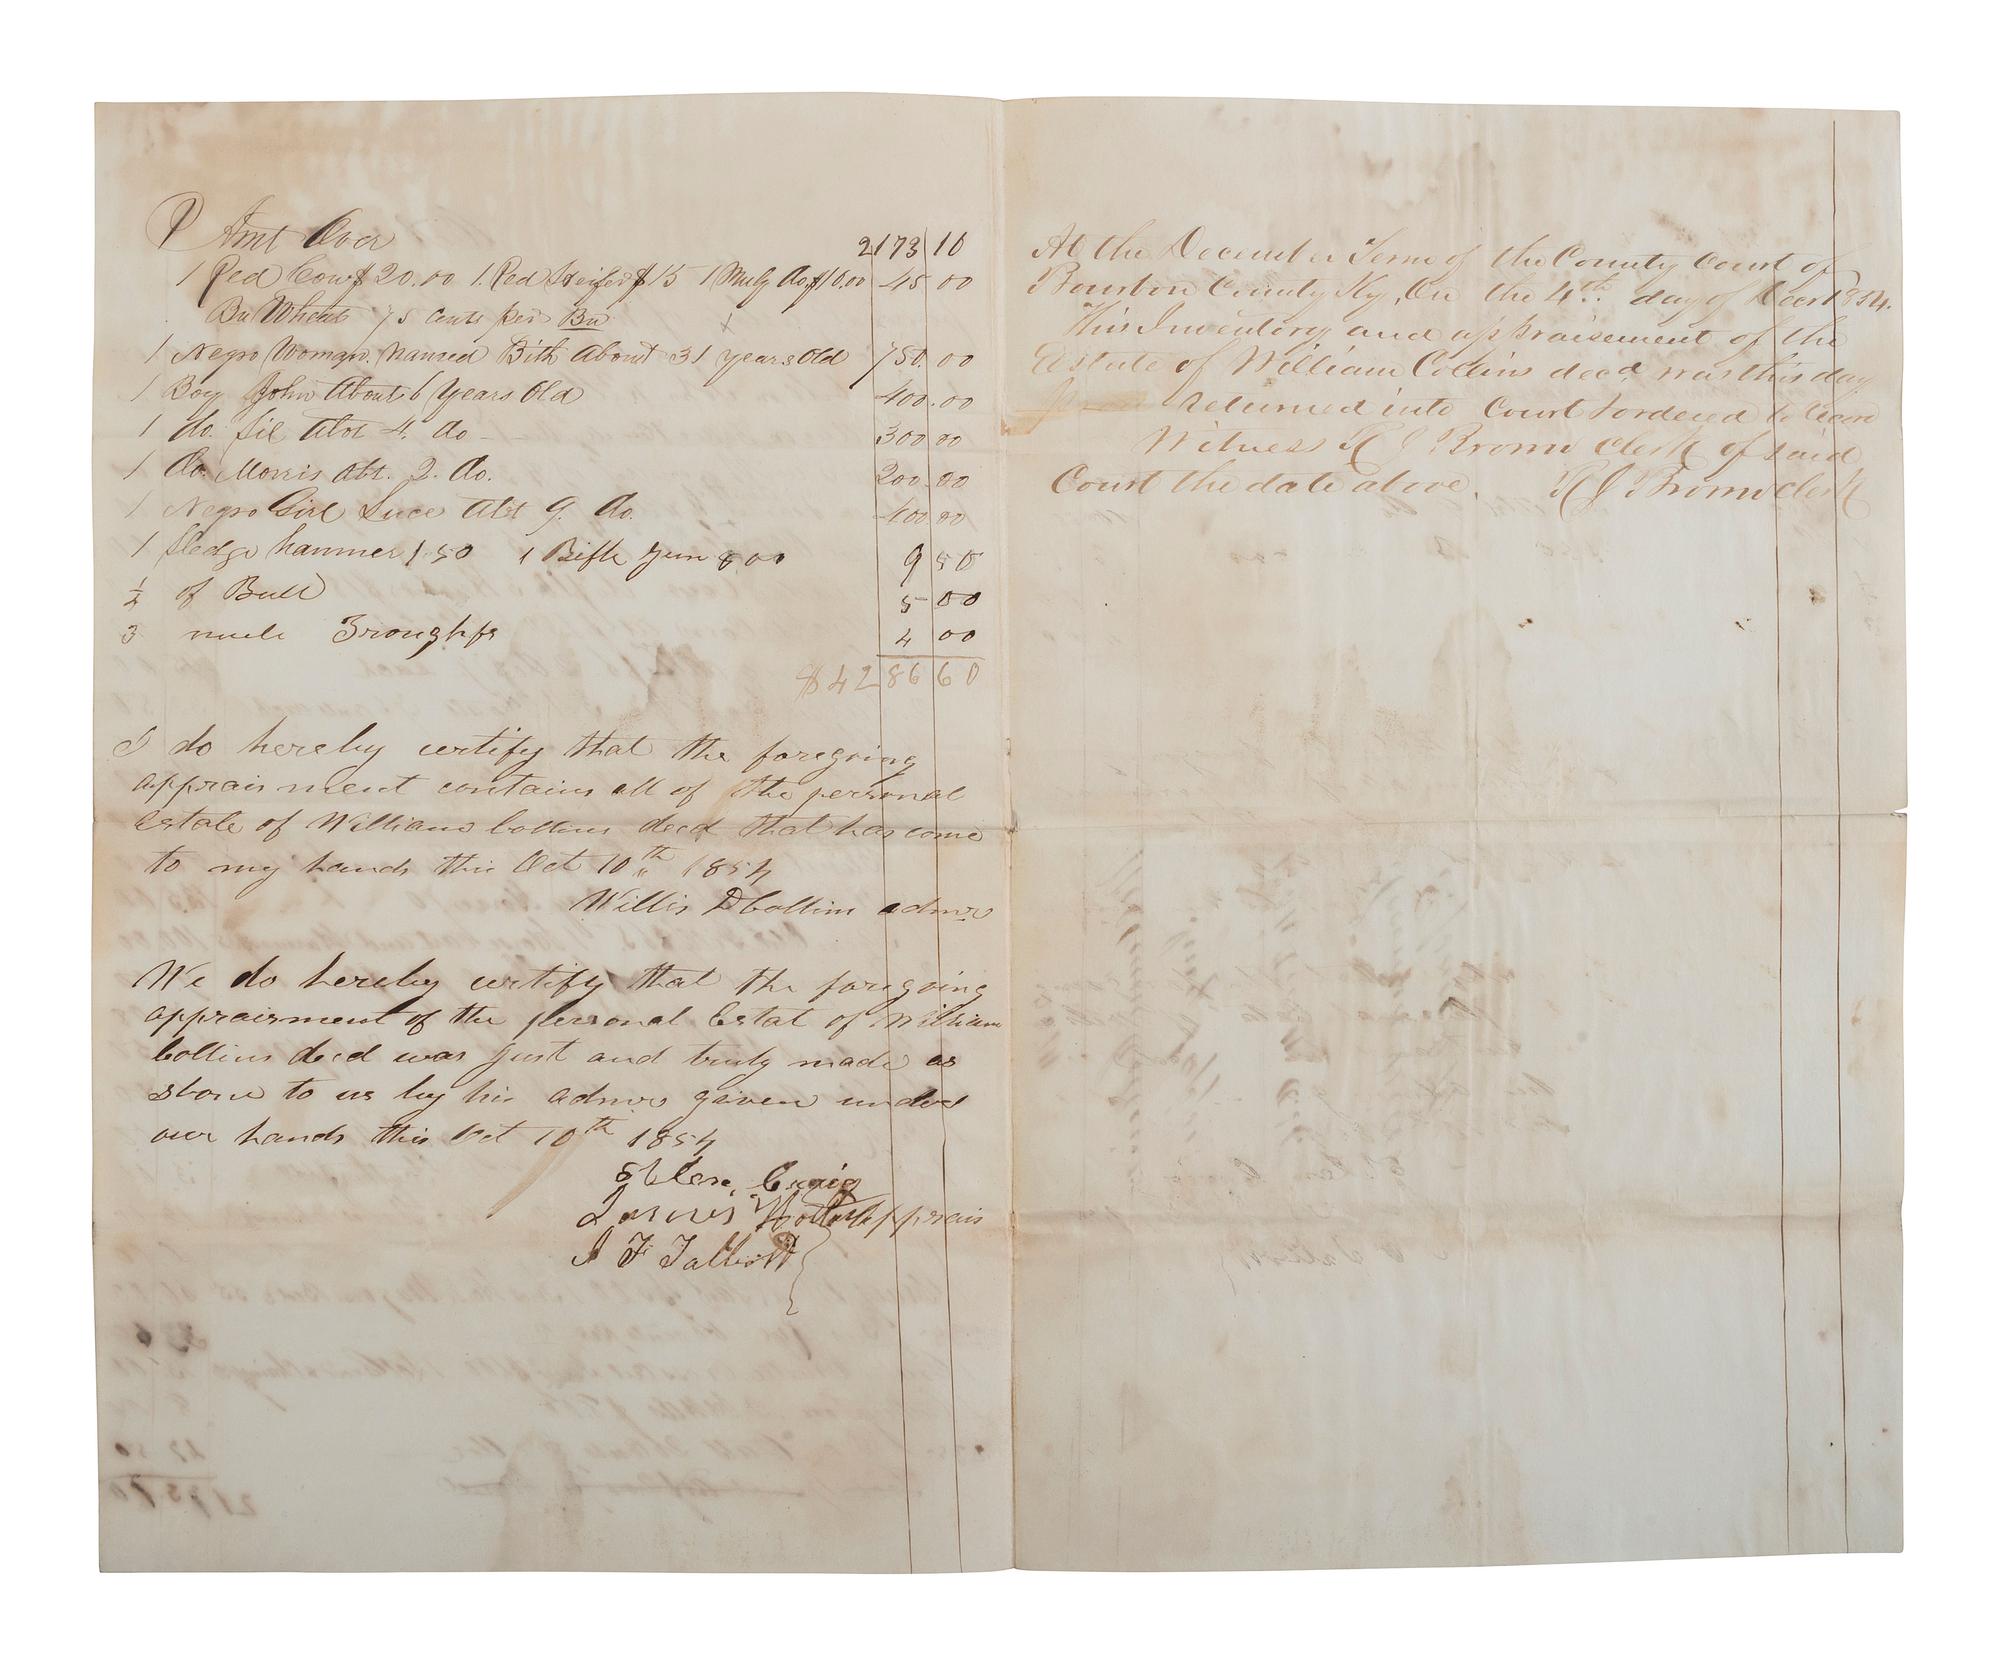 Amt Over 2173 10
1 Red Cow $20.00 1 Red Heifer $15 1 Muly do $10.00 45 00
Bu Wheat 75 cents per Bu
1 Negro Woman named Bith About 31 years Old 750.00
1 Boy John About 6 Years Old 400.00
1 do. Sil Abt 4. do 300 00
1 do. Morris Abt. 2. do. 200.00
1 Negro Girl Luce Abt 9. do. 400 00
1 sledge hammer 1.50 1 Rifle gun 8 00 9 50
½ of Bull 5 00
3 mule Troughfs 4 00
$4286 60
I do hereby certify that the foregoing
appraisment contains all of the personal
Estate of William Collins decd that has come
to my hands this Oct 10th 1854
Willis D Collins admr
We do hereby certify that the foregoing
appraisment of the personal Estat of William
Collins decd was just and truly made as
shone to us by his admr given under
our hands this Oct 10th 1854
Craig
apprais
J F Talbott
At the December Term of the County Court of
Bourbon County Ky, On the 4th day of Decr 1854.
This Inventory and appraisement of the
Estate of William Collins decd was this day
returned into Court & ordered to
Witness R J Brown Clerk of said
Court the date above. R J Brown Clerk